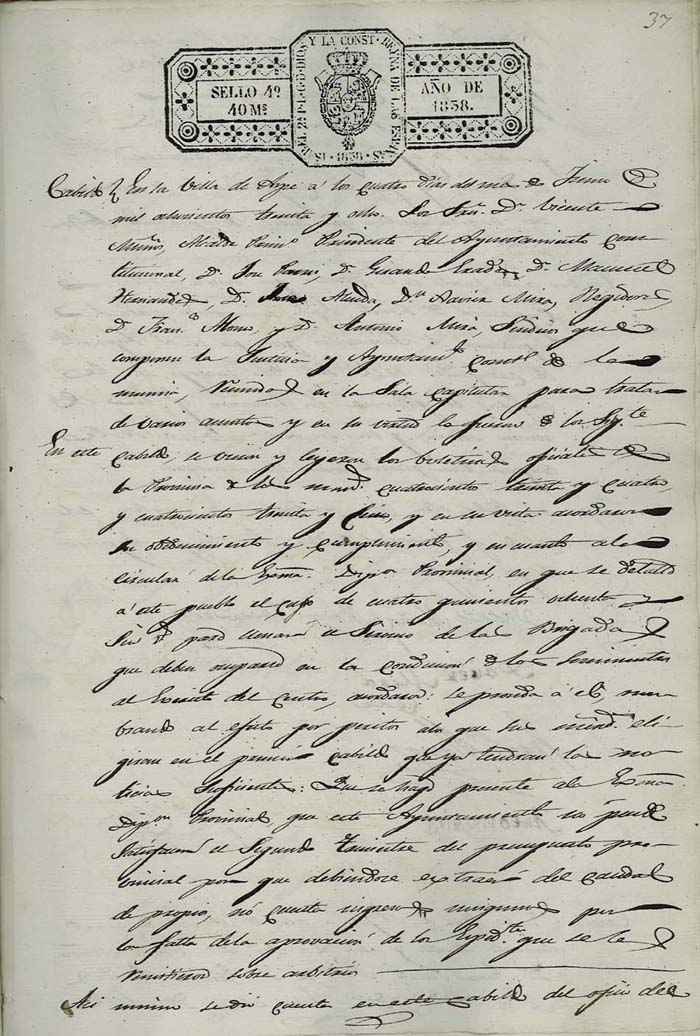 37
SELLO 4º
40 Mˢ
ISABEL 2ª P. L. G. D. DIOS Y LA CONST. REYNA DE LAS ESPAÑAS
1838
AÑO DE
1838.
Cabildo En la Villa de Aspe á los cuatro dias del mes de Junio de
mil ochocientos treinta y ocho. Los Srs. Dn. Vicente
Alcalde Primº Presidente del Ayuntamiento Cons
titucional, D. Jose D. Gerardo D. Manuel
Hernandez, D. Juan Dn. Xavier Mira, Regidores,
D. Franº Alonso, y D. Antonio Mira, Sindicos que
componen la Justicia y Ayuntamtº Constl de la
misma, reunidos en la Sala capitular para tratar
de varios asuntos y en su virtud lo fueron de los Sigtes
En este cabildo se vieron y leyeron los boletines oficiales de
la Provincia de los numˢ cuatrocientos treinta y cuatro
y cuatrocientos treinta y cinco, y en su vista acordaron
su obedecimiento y cumplimiento, y en cuanto a la
circular de la Exma. Dipºn Provincial, en que se detalla
á este pueblo el cupo de cuatro quinientos ochenta y
para el Servicio de las Brigadas
que deben ocuparse en la conduccion de los Suministros
al Exercito del centro, acordaron: se proceda á ello nom
brando al efecto por peritos a los que sus mercds eli
giran en el primer cabildo que ya tendran las no
ticias suficientes: Que se haga presente a la Exma.
Dipºn Provincial que este Ayuntamiento no puede
satisfacer el Segundo trimestre del presupuesto pro
vincial por que debiendose extraer del caudal
de propios, no cuenta ingresos ningunos por
la falta de la aprovacion de los Expedtes que se le
remitieron sobre arbitrios
Asi mismo se dio cuenta en este cabildo del oficio del